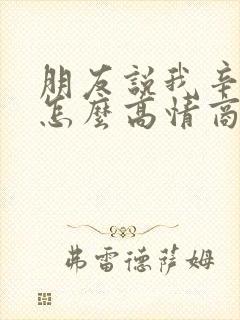 朋友說我辛
怎麼高情商
弗雷德薩姆